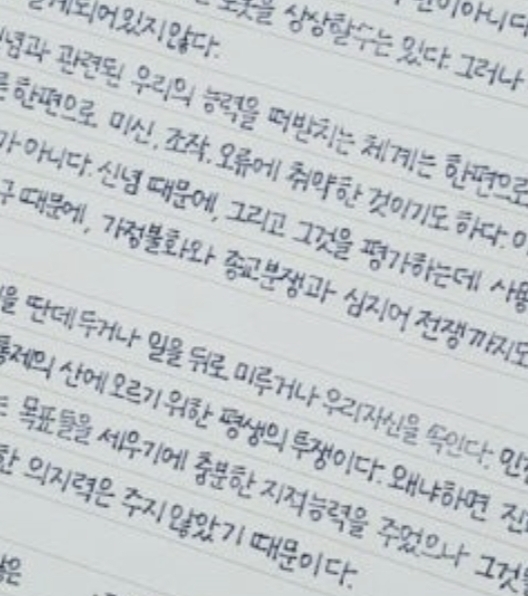 이 아니다
계되어 있지 않다. 로봇을 상상할 수는 있다. 그러나
념과 관련된 우리의 능력을 떠받치는 체계는 한편으로
른 한편으로 미신, 조작, 오류에 취약한 것이기도 하다. 이
가 아니다. 신념 때문에, 그리고 그것을 평가하는데 사용
구 때문에, 가정불화와 종교분쟁과 심지어 전쟁까지도
을 딴데 두거나 일을 뒤로 미루거나 우리 자신을 속인다. 인간
통제의 산에 오르기 위한 평생의 투쟁이다. 왜냐하면 진
는 목표들을 세우기에 충분한 지적능력을 주었으나 그것을
한 의지력은 주지 않았기 때문이다.